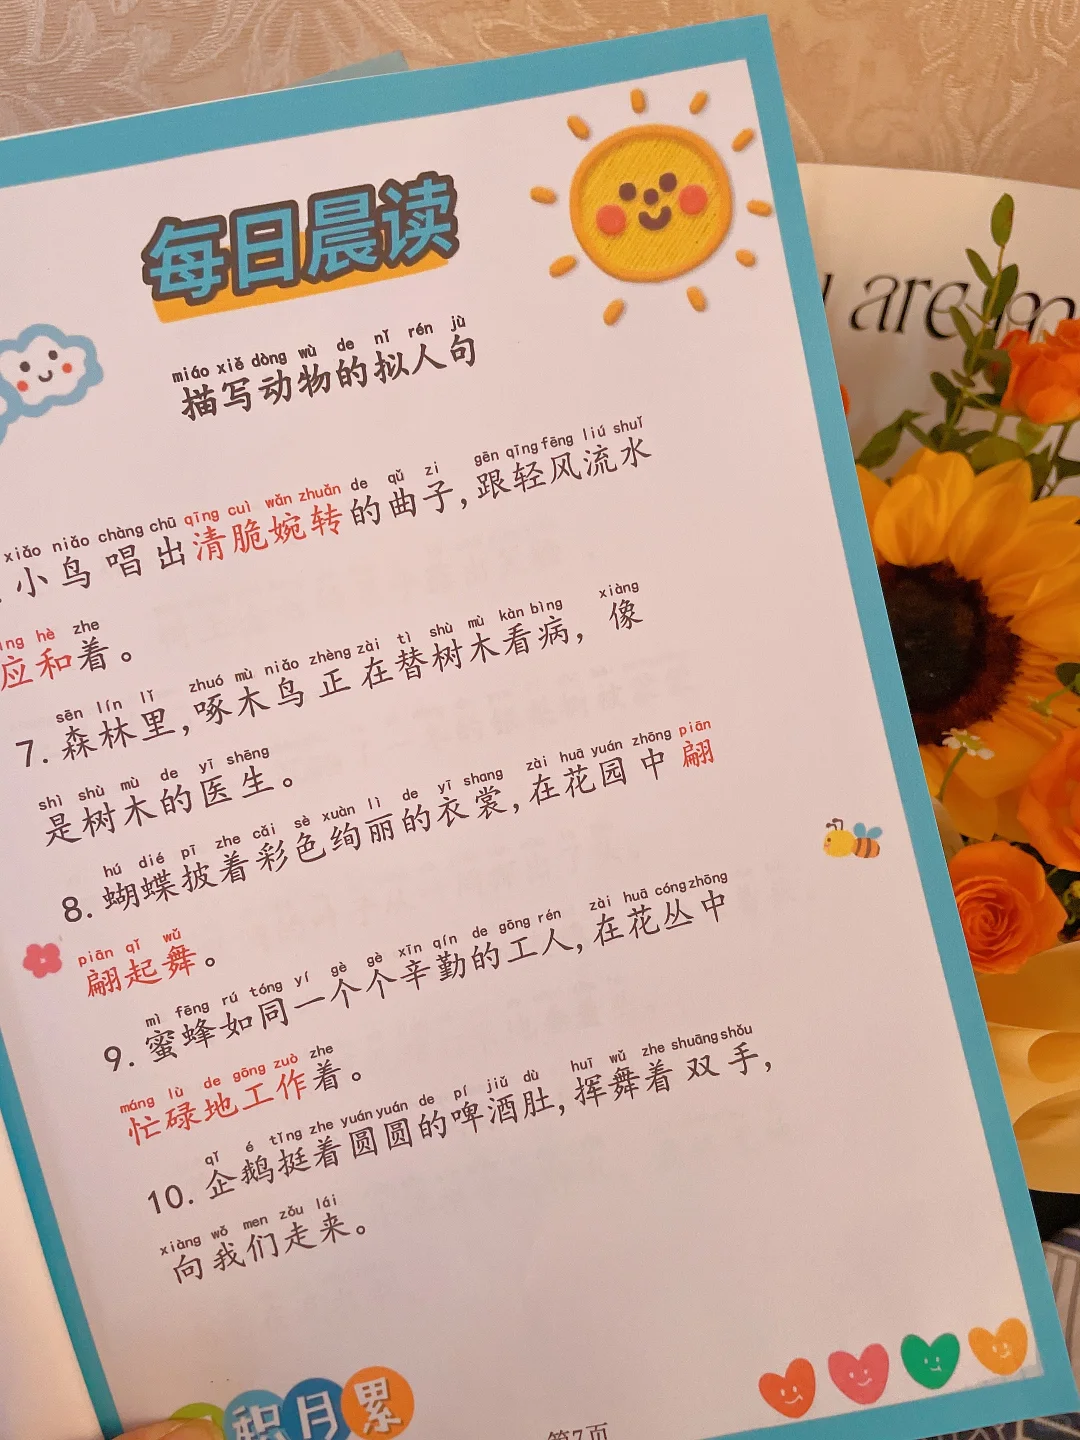 每日晨读
are
miáo xiě dòng wù de nǐ rén jù
描写动物的拟人句
xiǎo niǎo chàng chū qīng cuì wǎn zhuǎn de qǔ zi gēn qīng fēng liú shuǐ
小鸟唱出清脆婉转的曲子,跟轻风流水
hè zhe
应和着。
sēn lín lǐ zhuó mù niǎo zhèng zài tì shù mù kàn bìng xiàng
7. 森林里,啄木鸟正在替树木看病,像
shì shù mù de yī shēng
是树木的医生。
hú dié pī zhe cǎi sè xuàn lì de yī shang zài huā yuán zhōng piān
8. 蝴蝶披着彩色绚丽的衣裳,在花园中翩
piān qǐ wǔ
翩起舞。
mì fēng rú tóng yí gè gè xīn qín de gōng rén zài huā cóng zhōng
9. 蜜蜂如同一个个辛勤的工人,在花丛中
máng lù de gōng zuò zhe
忙碌地工作着。
qǐ é tǐng zhe yuán yuán de pí jiǔ dù huī wǔ zhe shuāng shǒu
10. 企鹅挺着圆圆的啤酒肚,挥舞着双手,
xiàng wǒ men zǒu lái
向我们走来。
积月累
第7页